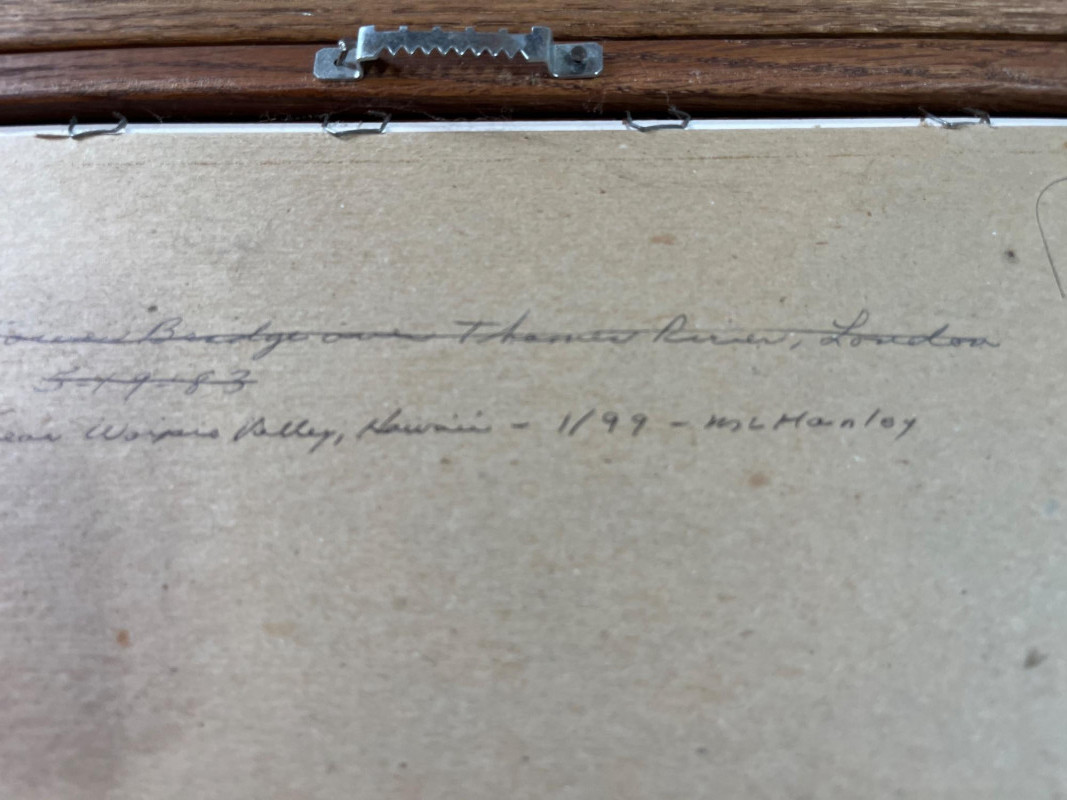 Tower Bridge over Thames River, London
3-19-83
Near Waipio Valley, Hawaii - 1/99 - MLHanley